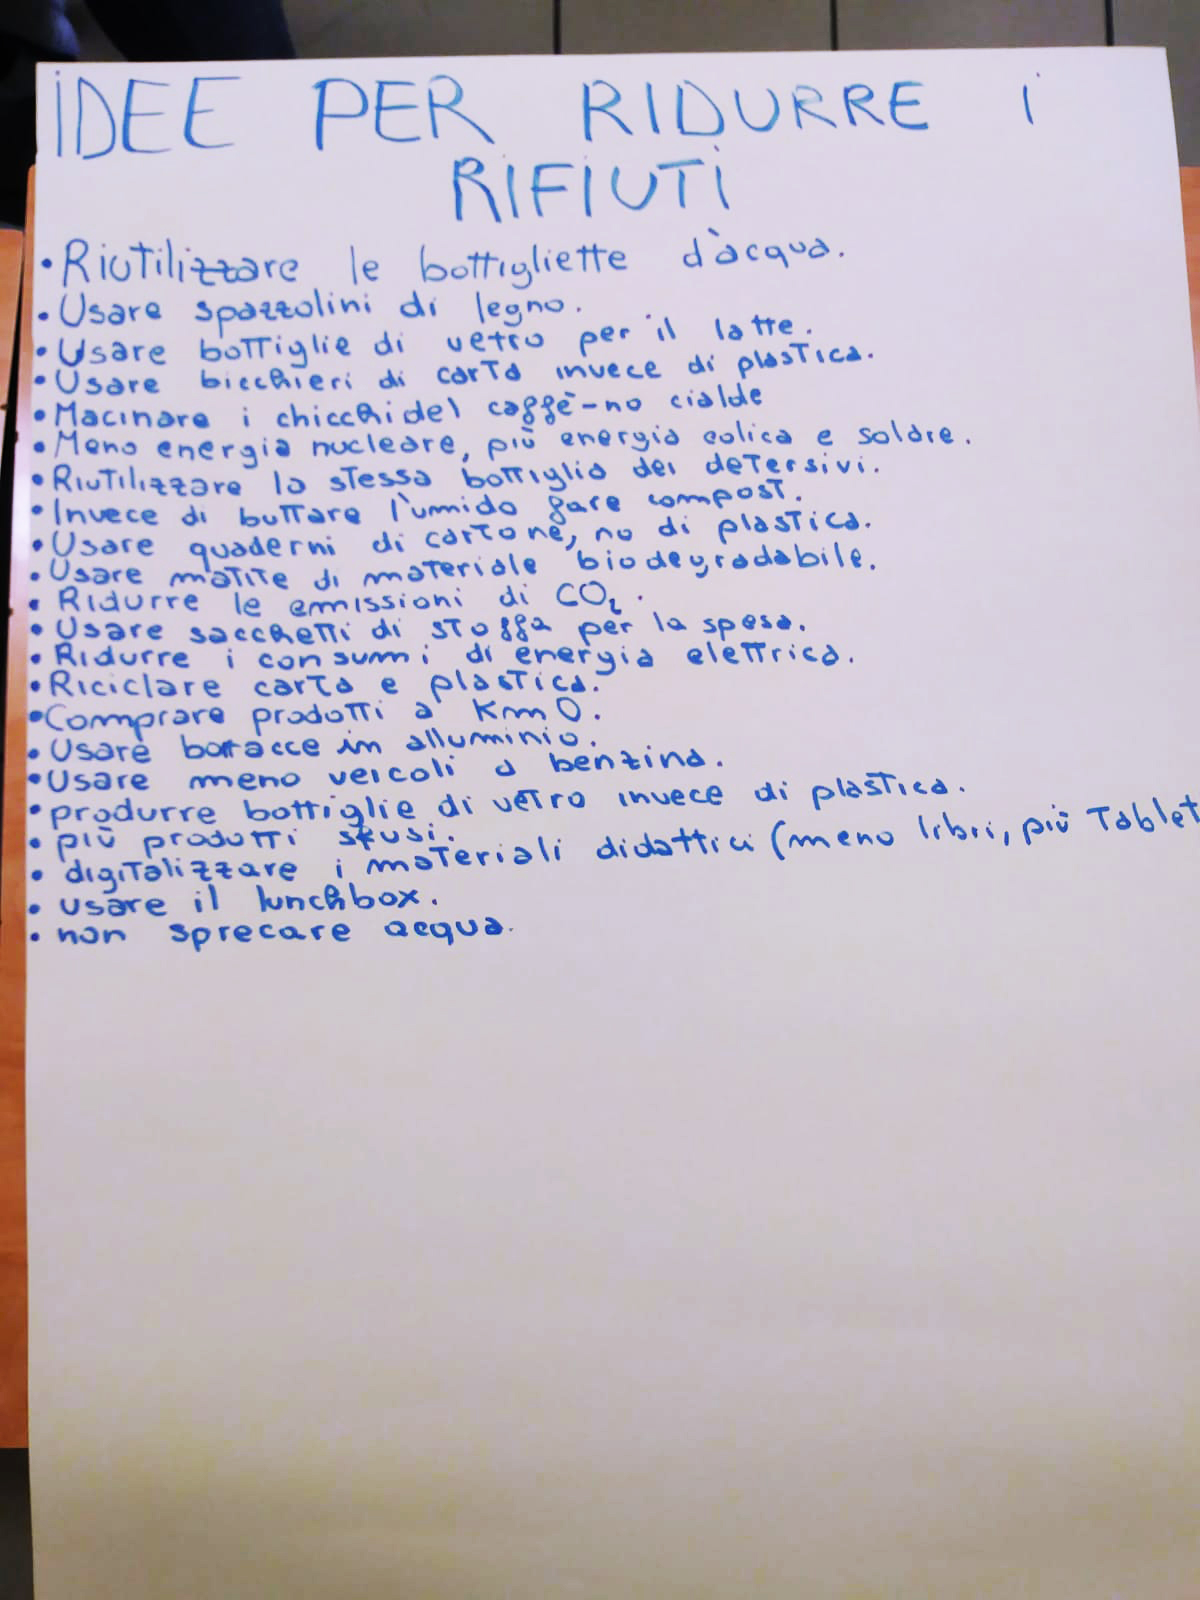 IDEE PER RIDURRE I
RIFIUTI
• Riutilizzare le bottigliette d'acqua.
• Usare spazzolini di legno.
• Usare bottiglie di vetro per il latte.
• Usare bicchieri di carta invece di plastica.
• Macinare i chicchi del caffè-no cialde
• Meno energia nucleare, più energia eolica e solare.
• Riutilizzare la stessa bottiglia dei detersivi.
• Invece di buttare l'umido fare compost.
• Usare quaderni di cartone, no di plastica.
• Usare matite di materiale biodegradabile.
• Ridurre le emissioni di CO₂.
• Usare sacchetti di stoffa per la spesa.
• Ridurre i consumi di energia elettrica.
• Riciclare carta e plastica.
• Comprare prodotti a Km0.
• Usare borracce in alluminio.
• Usare meno veicoli a benzina.
• produrre bottiglie di vetro invece di plastica.
• più prodotti sfusi.
• digitalizzare i materiali didattici (meno libri, più Tablet
• usare il lunchbox.
• non sprecare acqua.